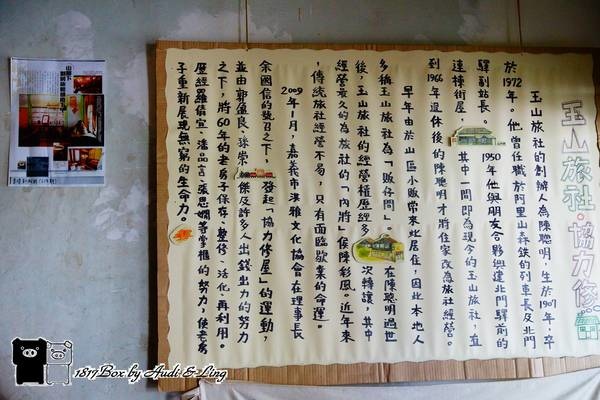 玉山旅社·協力修
玉山旅社的創辦人為陳聰明,生於1907年,卒
於1972年。他曾任職於阿里山森鉄的列車長及北門
驛副站長。1950年他與朋友合夥興建北門驛前的
連棟街屋,其中一間即為現今的玉山旅社,直
到1966年退休後的陳聰明才將住家改為旅社經營。
早年由於山區小販常來此居住,因此本地人
多稱玉山旅社為「販仔間」。在陳聰明過世
後,玉山旅社的經營權歷經多次轉讓,其中
經營最久的為旅社的「內將」侯陳彩鳳。近年來
,傳統旅社經營不易,只有面臨歇業的命運。
2009年1月,嘉義市洪雅文化協會在理事長
余國信的號召之下,發起「協力修屋」的運動,
並由郭盈良、孫崇傑及許多人出錢出力的努力
之下,將60年的老房子保存、整修、活化、再利用。
歷經羅倩宜、潘品言、張思嫺等掌櫃的努力,使老房
子重新展現無窮的生命力。
1817Box by Audi & Ling